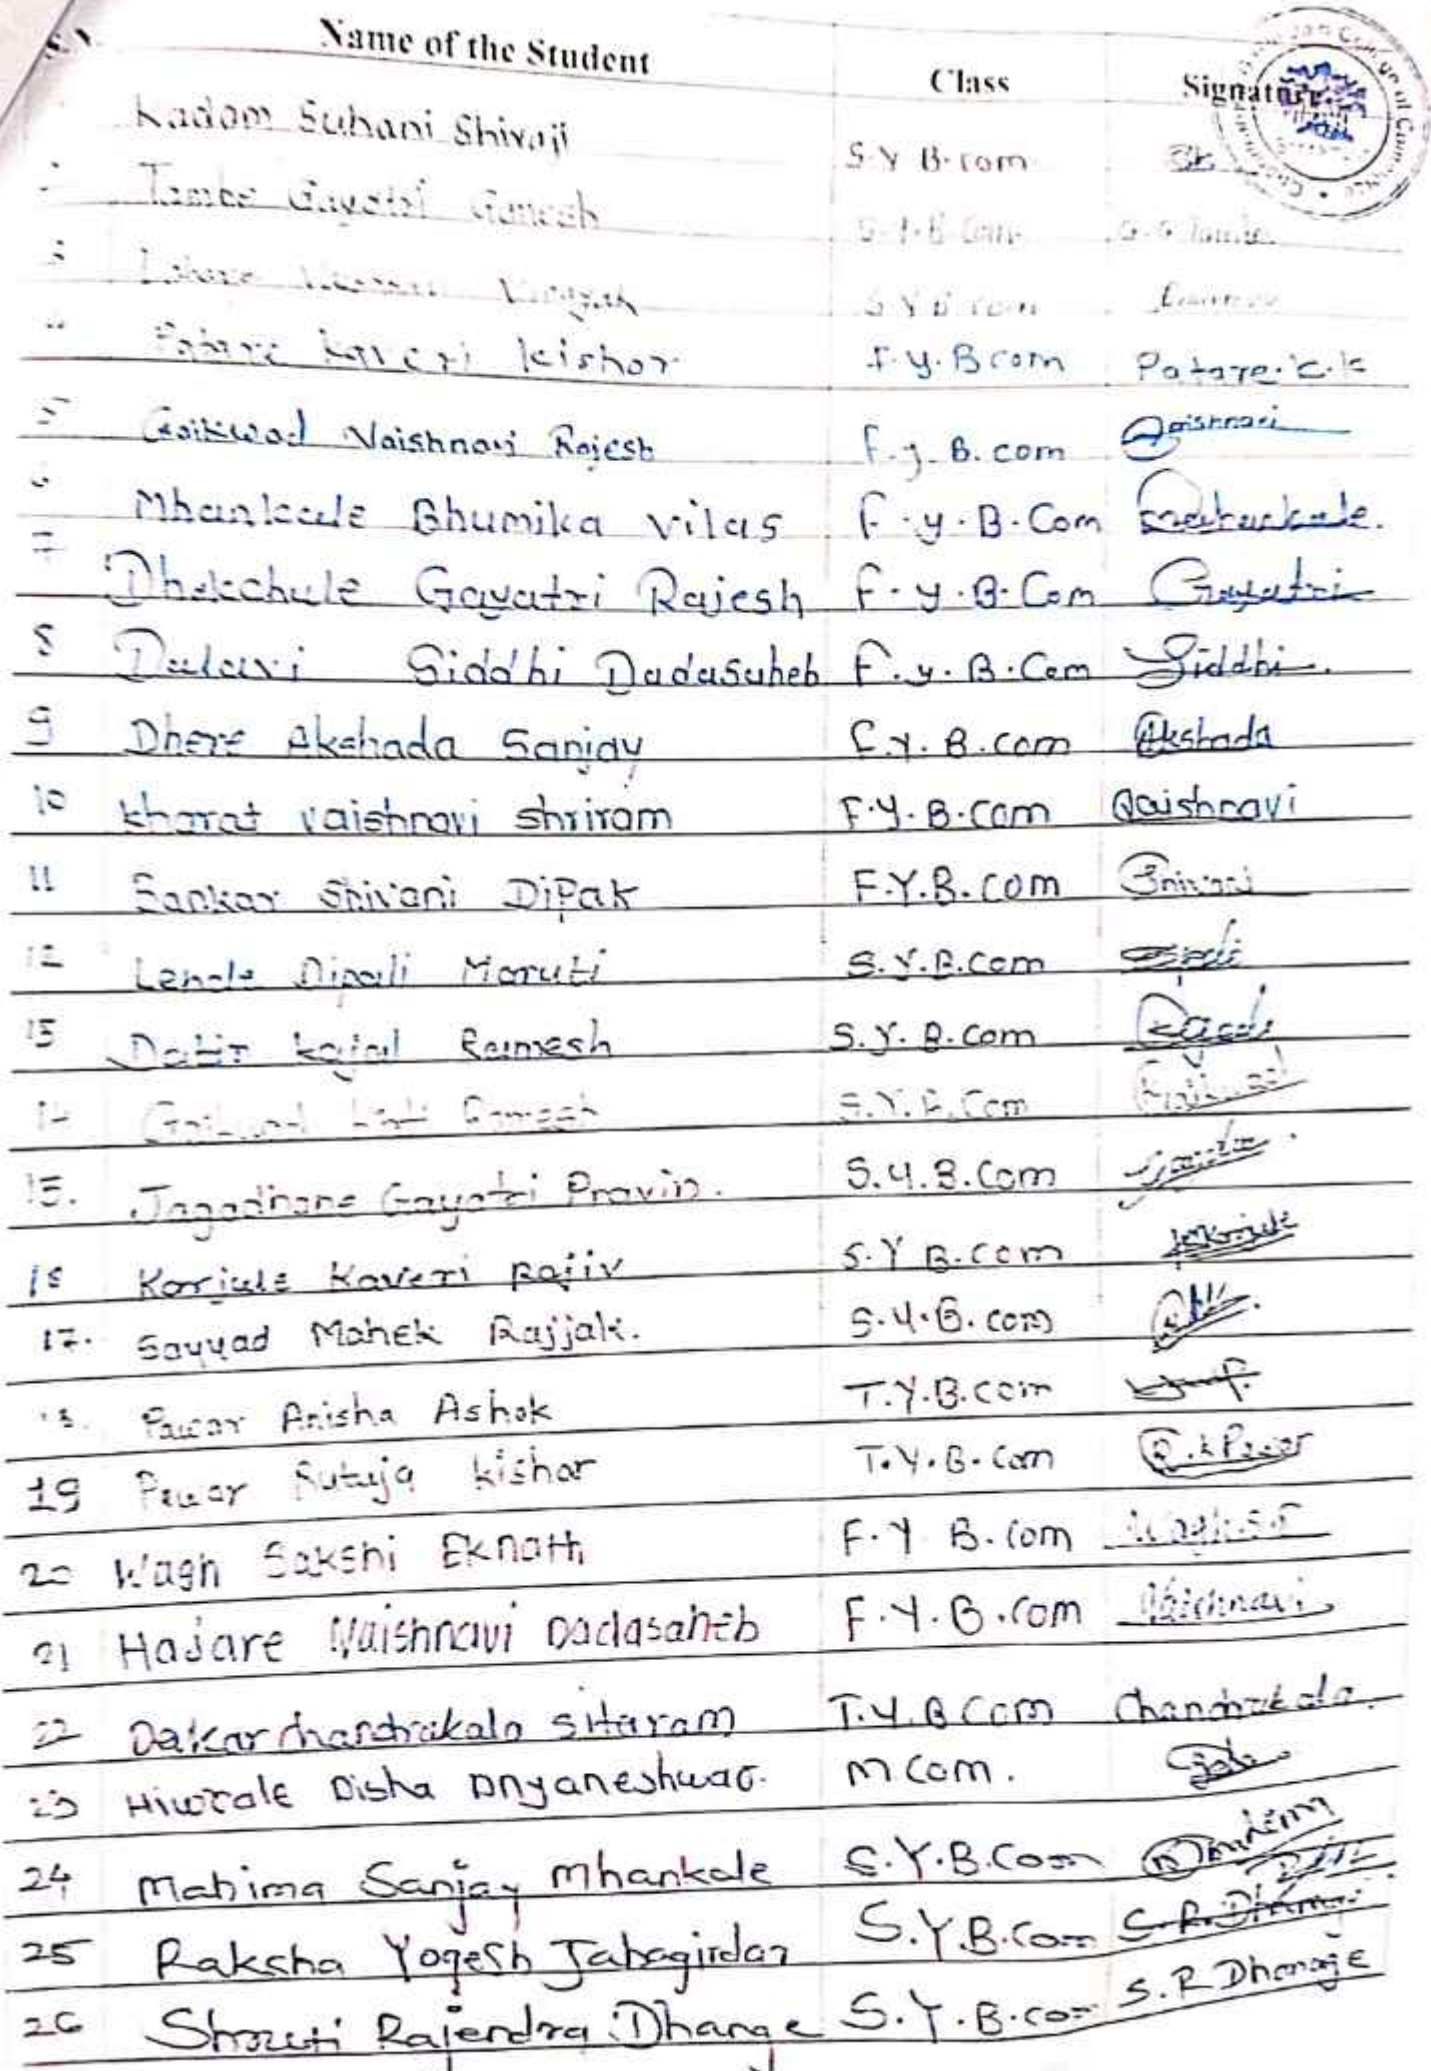 Name of the Student Class Signature
Kadam Suhani Shivaji S.Y B.com SK
Tambe Gayatri Ganesh S.Y.B Com G.G Tambe
3 Vinayak S Y B com
4 Patare Kaveri Kishor F.y.Bcom Patare.K.K
5 Gaikwad Vaishnavi Rajesh F.y.B.com Vaishnavi
6 Mhankale Bhumika Vilas F.y.B.Com
7 Dhakchule Gayatri Rajesh F.y.B.Com Gayatri
8 Dalavi Siddhi Dadasaheb F.y.B.Com Siddhi.
9 Dhere Akshada Sanjay F.Y.B.com Akshada
10 kharat vaishnavi shriram F.Y.B.Com Vaishnavi
11 Sankar Shivani Dipak F.Y.B.COM Shivani
12 Lende Dipali Maruti S.Y.B.Com
13 Datir kajal Ramesh S.Y.B.Com
14 Gaikwad Ramesh S.Y.B.Com Gaikwad
15. Jagadhane Gayatri Pravin. S.Y.B.Com
16 Karjule Kaveri Rajiv S.Y B.com
17. Sayyad Mahek Rajjak. S.Y.B.com
18. Pawar Anisha Ashok T.Y.B.com
19 Pawar Rutuja kishor T.Y.B.Com R.K Pawar
20 Wagh Sakshi Eknath F.Y B.com Wagh.S.E
21 Hajare Vaishnavi Dadasaheb F.Y.B.com Vaishnavi
22 Dakar chandrakala sitaram T.Y.B Com Chandrakala.
23 Hiwrale Disha Dnyaneshwar. M com.
24 Mahima Sanjay Mhankale S.Y.B.Com
25 Raksha Yogesh Jahagirdar S.Y.B.Com
26 Shruti Rajendra Dhange S.Y.B.com S.R Dhange